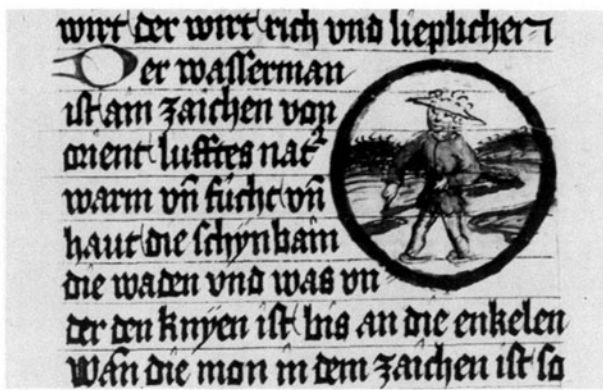 wirt der wirt rich vnd lieplicher
Der wasserman
ist ain zaichen von
orient lufftes nat
warm vn̄ fücht vn̄
haut die schynbain
die waden vnd was vn
der den knyen ist bis an die enkelen
Wan̄ die mon in dem zaichen ist so